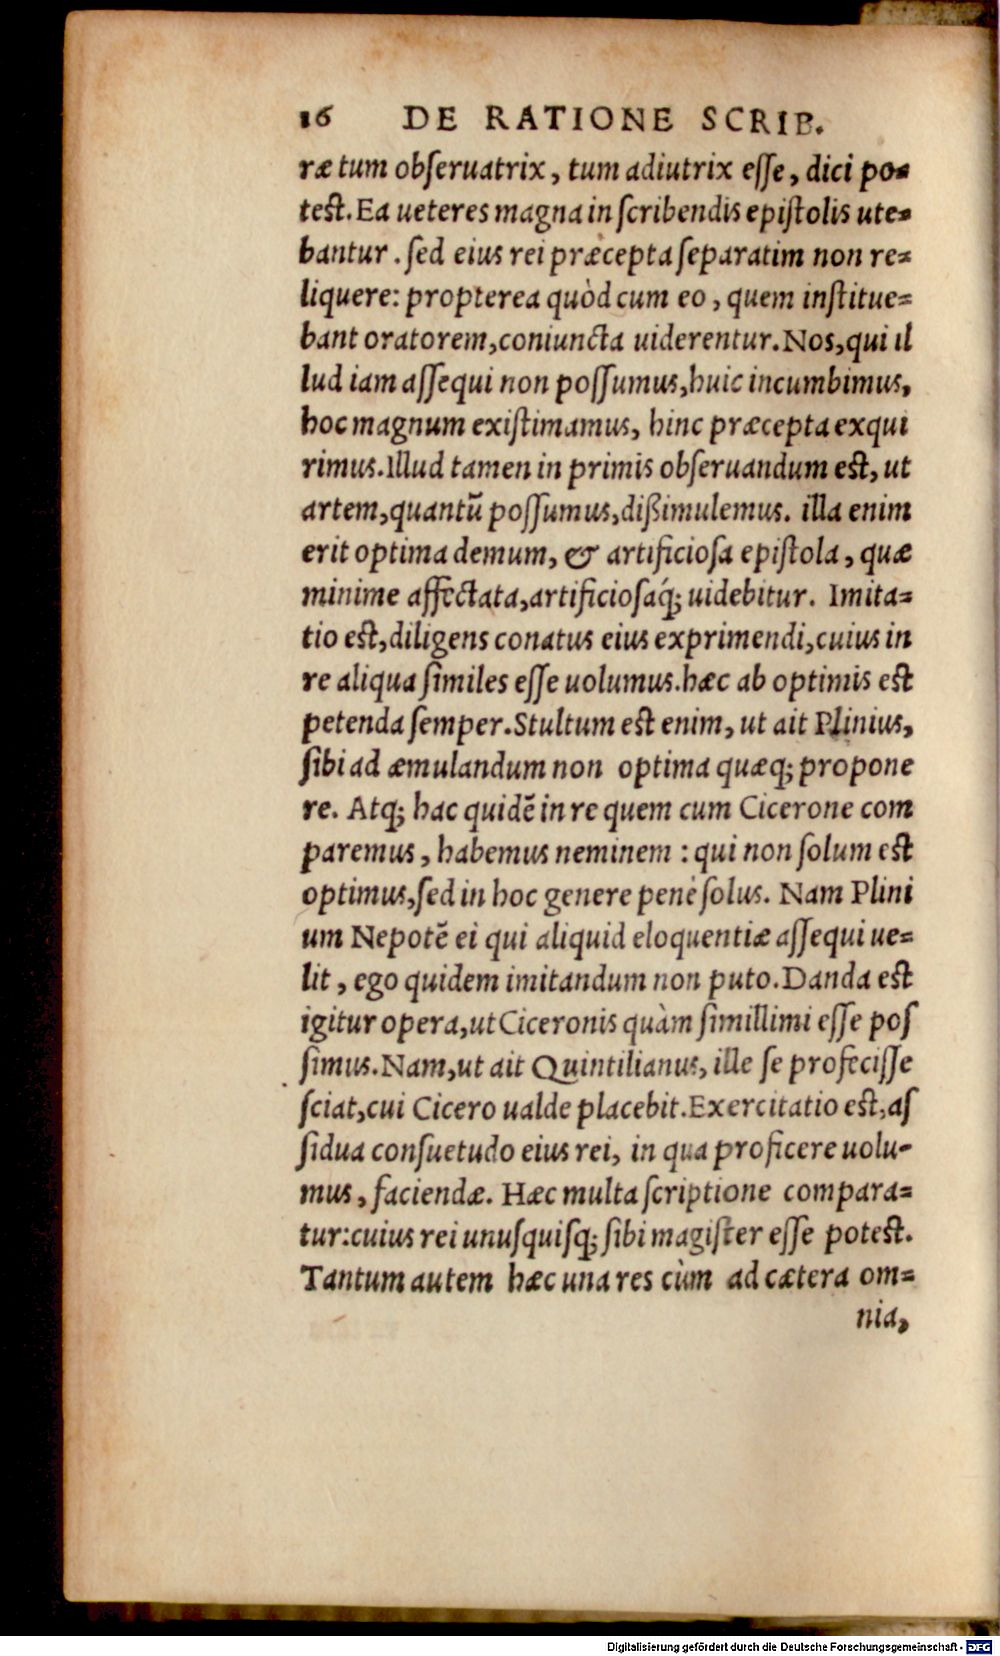 16 DE RATIONE SCRIB.
ræ tum obseruatrix, tum adiutrix esse, dici po-
test. Ea ueteres magna in scribendis epistolis ute-
bantur. sed eius rei præcepta separatim non re-
liquere: propterea quòd cum eo, quem institue-
bant oratorem, coniuncta uiderentur. Nos, qui il
lud iam assequi non possumus, huic incumbimus,
hoc magnum existimamus, hinc præcepta exqui
rimus. Illud tamen in primis obseruandum est, ut
artem, quantũ possumus, dißimulemus. illa enim
erit optima demum, & artificiosa epistola, quæ
minime affectata, artificiosaq́; uidebitur. Imita-
tio est, diligens conatus eius exprimendi, cuius in
re aliqua similes esse uolumus. hæc ab optimis est
petenda semper. Stultum est enim, ut ait Plinius,
sibi ad æmulandum non optima quæq; propone
re. Atq; hac quidẽ in re quem cum Cicerone com
paremus, habemus neminem: qui non solum est
optimus, sed in hoc genere penè solus. Nam Plini
um Nepotẽ ei qui aliquid eloquentiæ assequi ue-
lit, ego quidem imitandum non puto. Danda est
igitur opera, ut Ciceronis quàm simillimi esse pos
simus. Nam, ut ait Quintilianus, ille se profecisse
sciat, cui Cicero ualde placebit. Exercitatio est, as
sidua consuetudo eius rei, in qua proficere uolu-
mus, faciendæ. Hæc multa scriptione compara-
tur: cuius rei unusquisq; sibi magister esse potest.
Tantum autem hæc una res cùm ad cætera om-
nia,
Digitalisierung gefördert durch die Deutsche Forschungsgemeinschaft - DFG